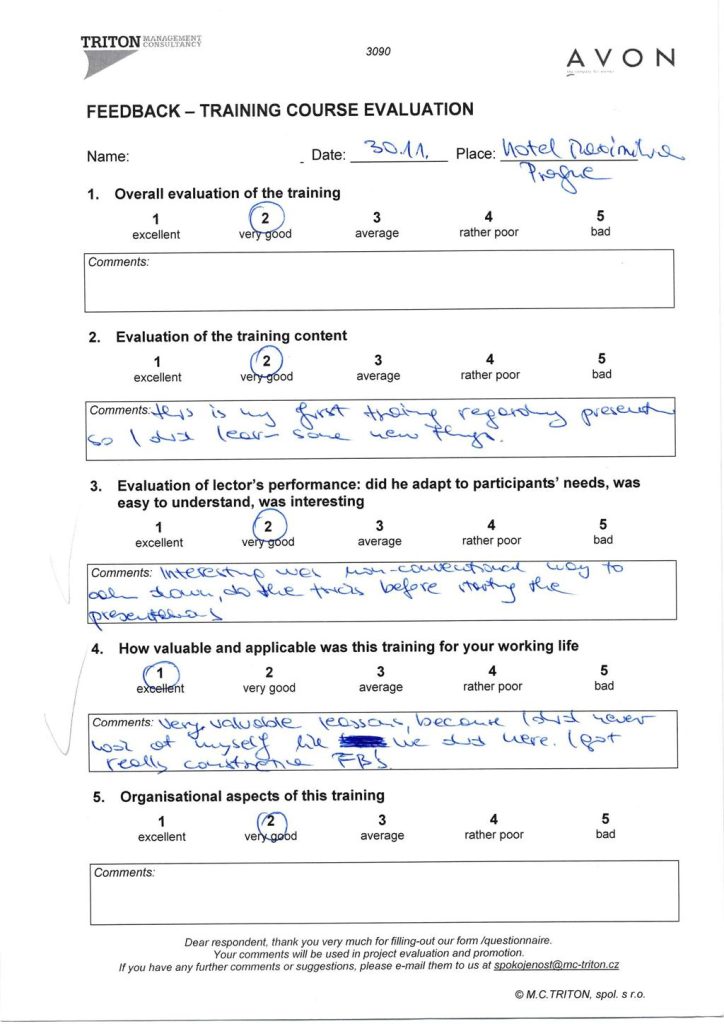 TRITON MANAGEMENT CONSULTANCY
3090
AVON
FEEDBACK – TRAINING COURSE EVALUATION
Name: Date: 30.11. Place: Hotel
Prague
1. Overall evaluation of the training
1 2 3 4 5
excellent very good average rather poor bad
Comments:
2. Evaluation of the training content
1 2 3 4 5
excellent very good average rather poor bad
Comments: this is my first training regarding
so I did learn some new things.
3. Evaluation of lector's performance: did he adapt to participants' needs, was
easy to understand, was interesting
1 2 3 4 5
excellent very good average rather poor bad
Comments: Interesting was non-conventional way to
calm down, do the tricks before starting the
presentations
4. How valuable and applicable was this training for your working life
1 2 3 4 5
excellent very good average rather poor bad
Comments: Very valuable because I did never
look at myself like we did here. I got
really FBs.
5. Organisational aspects of this training
1 2 3 4 5
excellent very good average rather poor bad
Comments:
Dear respondent, thank you very much for filling-out our form /questionnaire.
Your comments will be used in project evaluation and promotion.
If you have any further comments or suggestions, please e-mail them to us at spokojenost@mc-triton.cz
© M.C.TRITON, spol. s r.o.